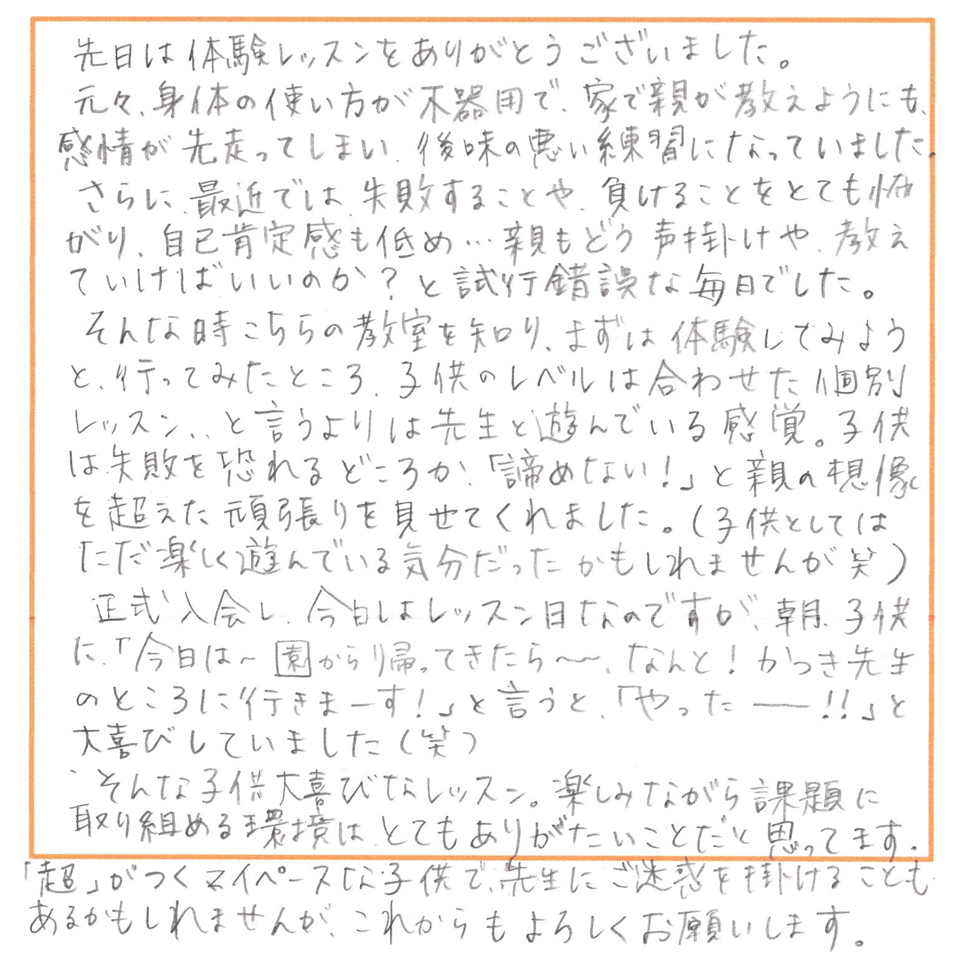 先日は体験レッスンをありがとうございました。
元々、身体の使い方が不器用で、家で親が教えようにも、
感情が先走ってしまい、後味の悪い練習になっていました。
さらに、最近では、失敗することや、負けることをとても怖
がり、自己肯定感も低め…親もどう声掛けや、教え
ていけばいいのか?と試行錯誤な毎日でした。
そんな時こちらの教室を知り、まずは体験してみよう
と、行ってみたところ、子供のレベルは合わせた個別
レッスン、、と言うよりは先生と遊んでいる感覚。子供
は失敗を恐れるどころか、「諦めない!」と親の想像
を超えた頑張りを見せてくれました。(子供としては
ただ楽しく遊んでいる気分だったかもしれませんが笑)
正式入会し、今日はレッスン日なのですが、朝、子供
に、「今日は~園から帰ってきたら〜〜、なんと!かつき先生
のところに行きまーす!」と言うと、「やったー!!」と
大喜びしていました(笑)
そんな子供大喜びなレッスン。楽しみながら課題に
取り組める環境は、とてもありがたいことだと思ってます。
「超」がつくマイペースな子供で、先生にご迷惑を掛けることも
あるかもしれませんが、これからもよろしくお願いします。